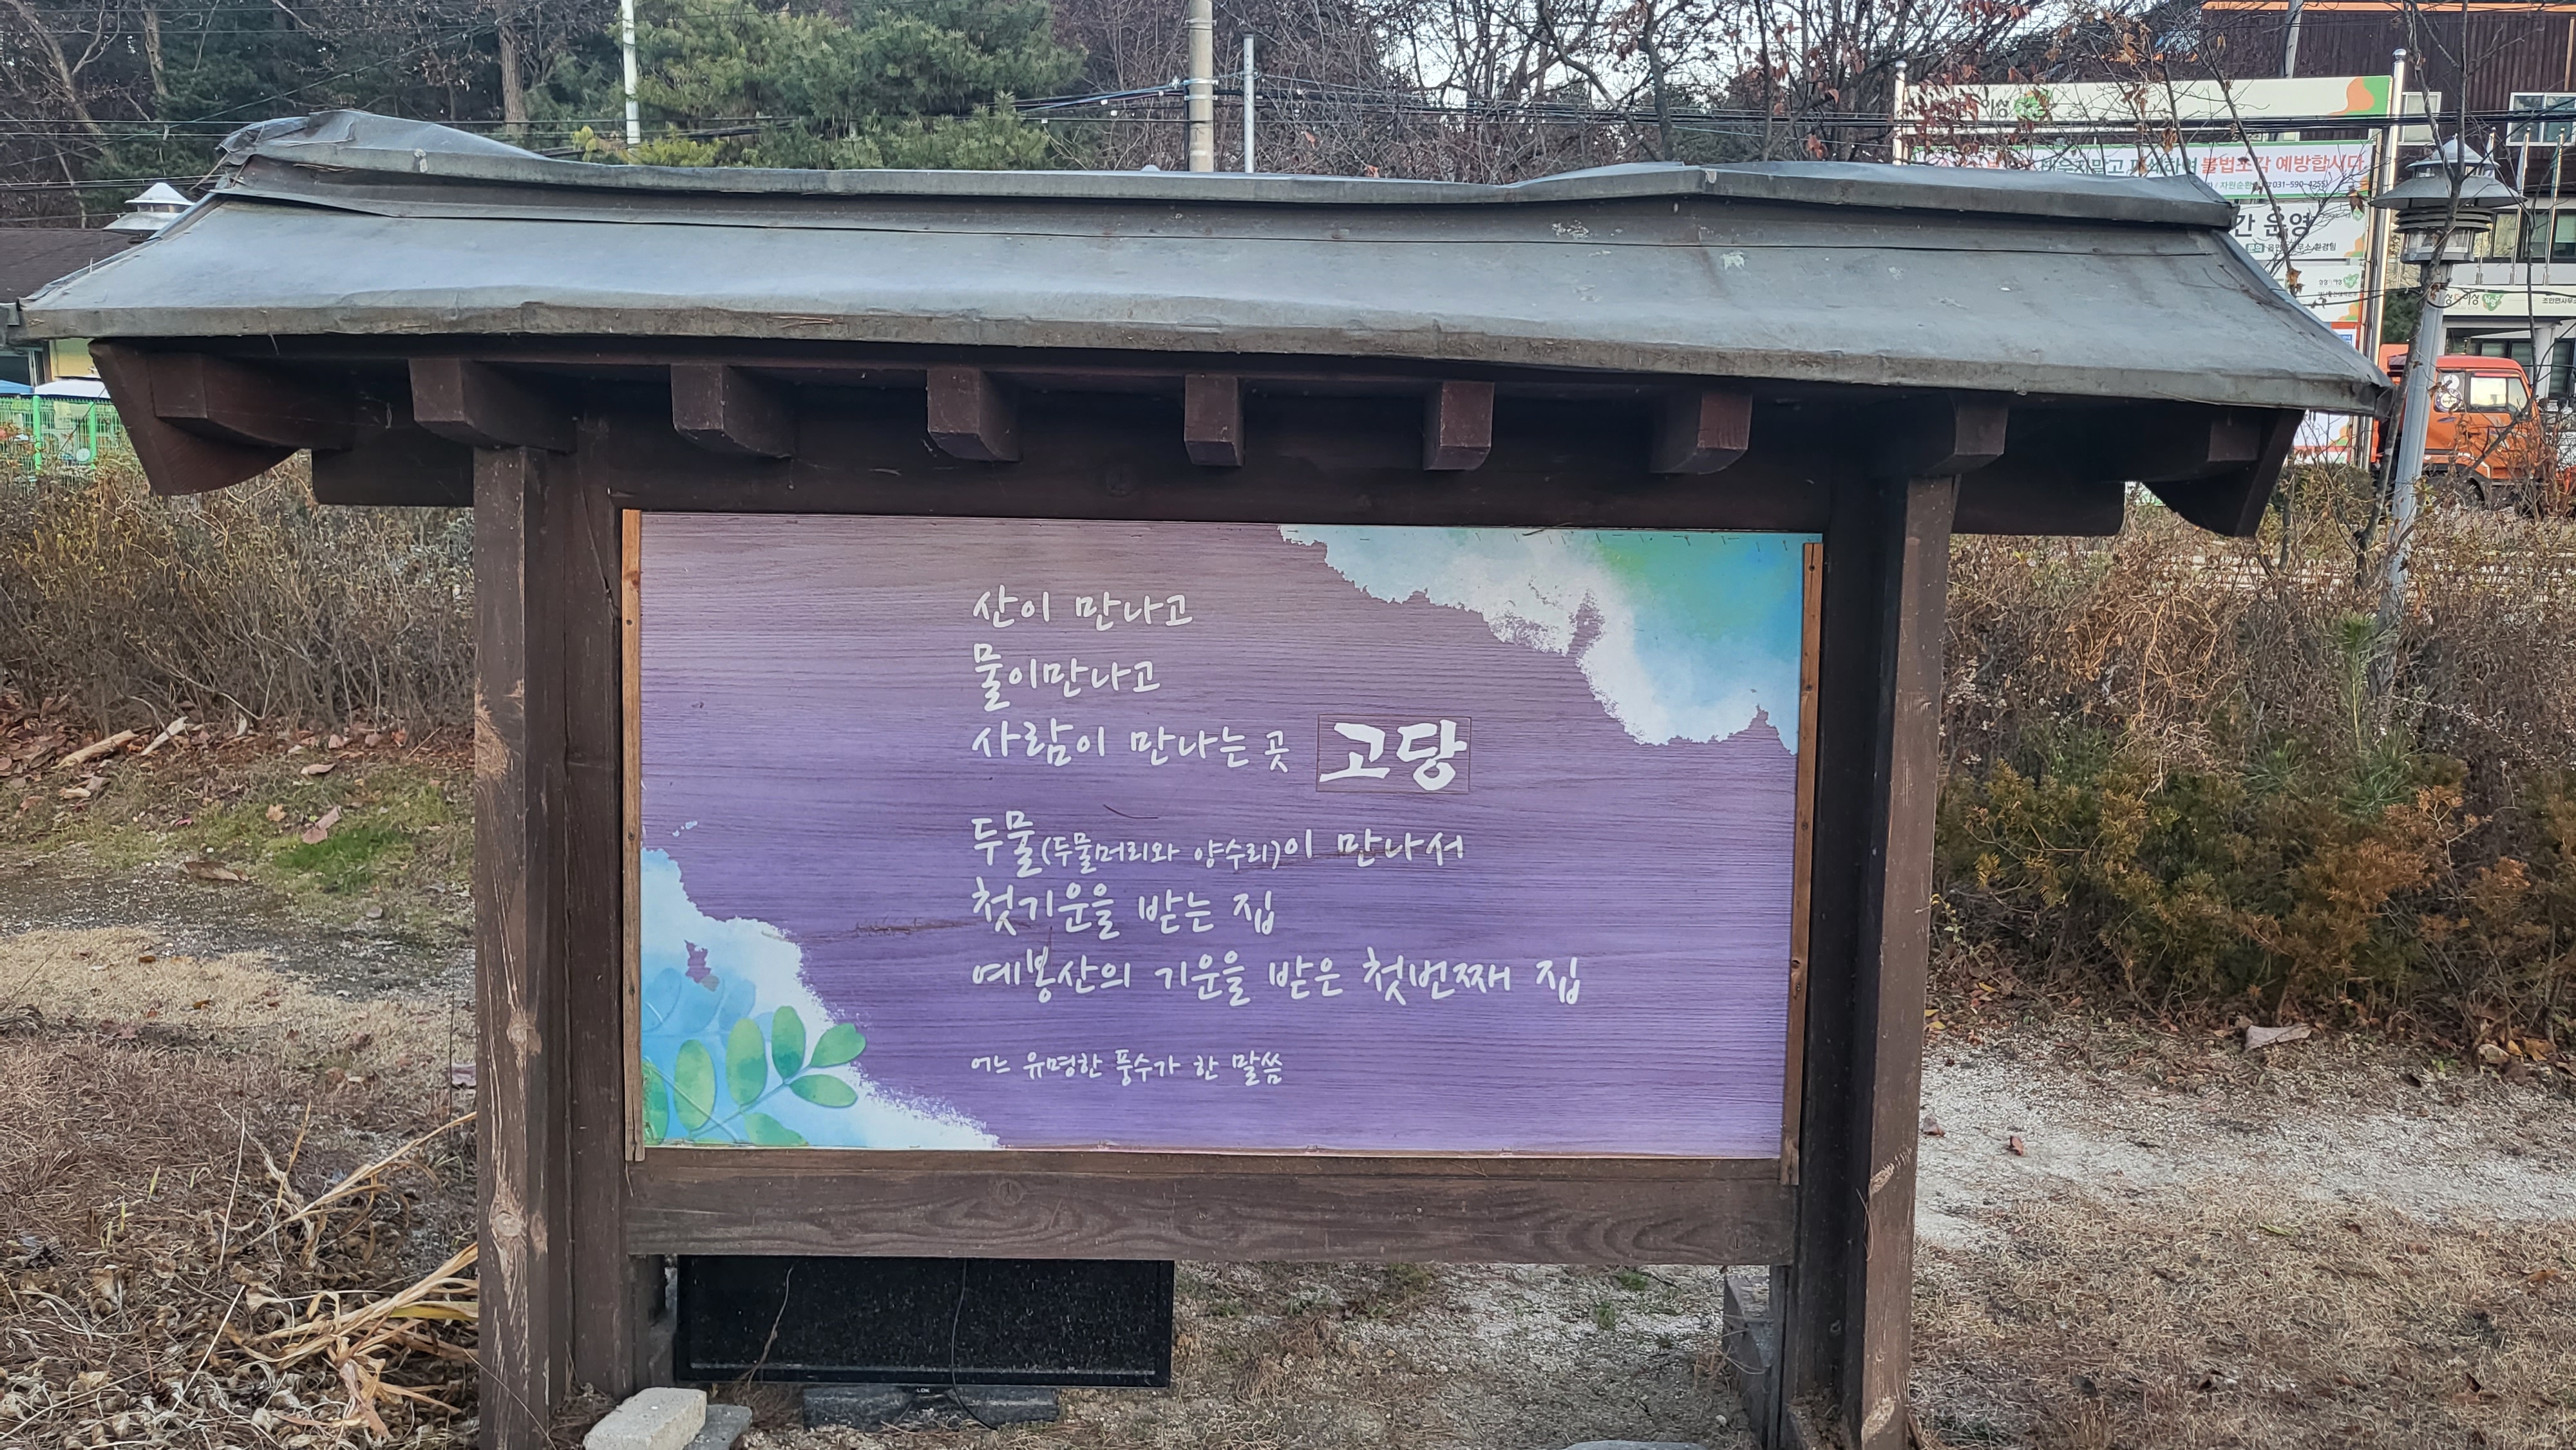 불법소각 예방합시다
자원순환
031-590-4255
간 운영
산이 만나고
물이만나고
사람이 만나는 곳 고당
두물(두물머리와 양수리)이 만나서
첫기운을 받는 집
예봉산의 기운을 받은 첫번째 집
어느 유명한 풍수가 한 말씀